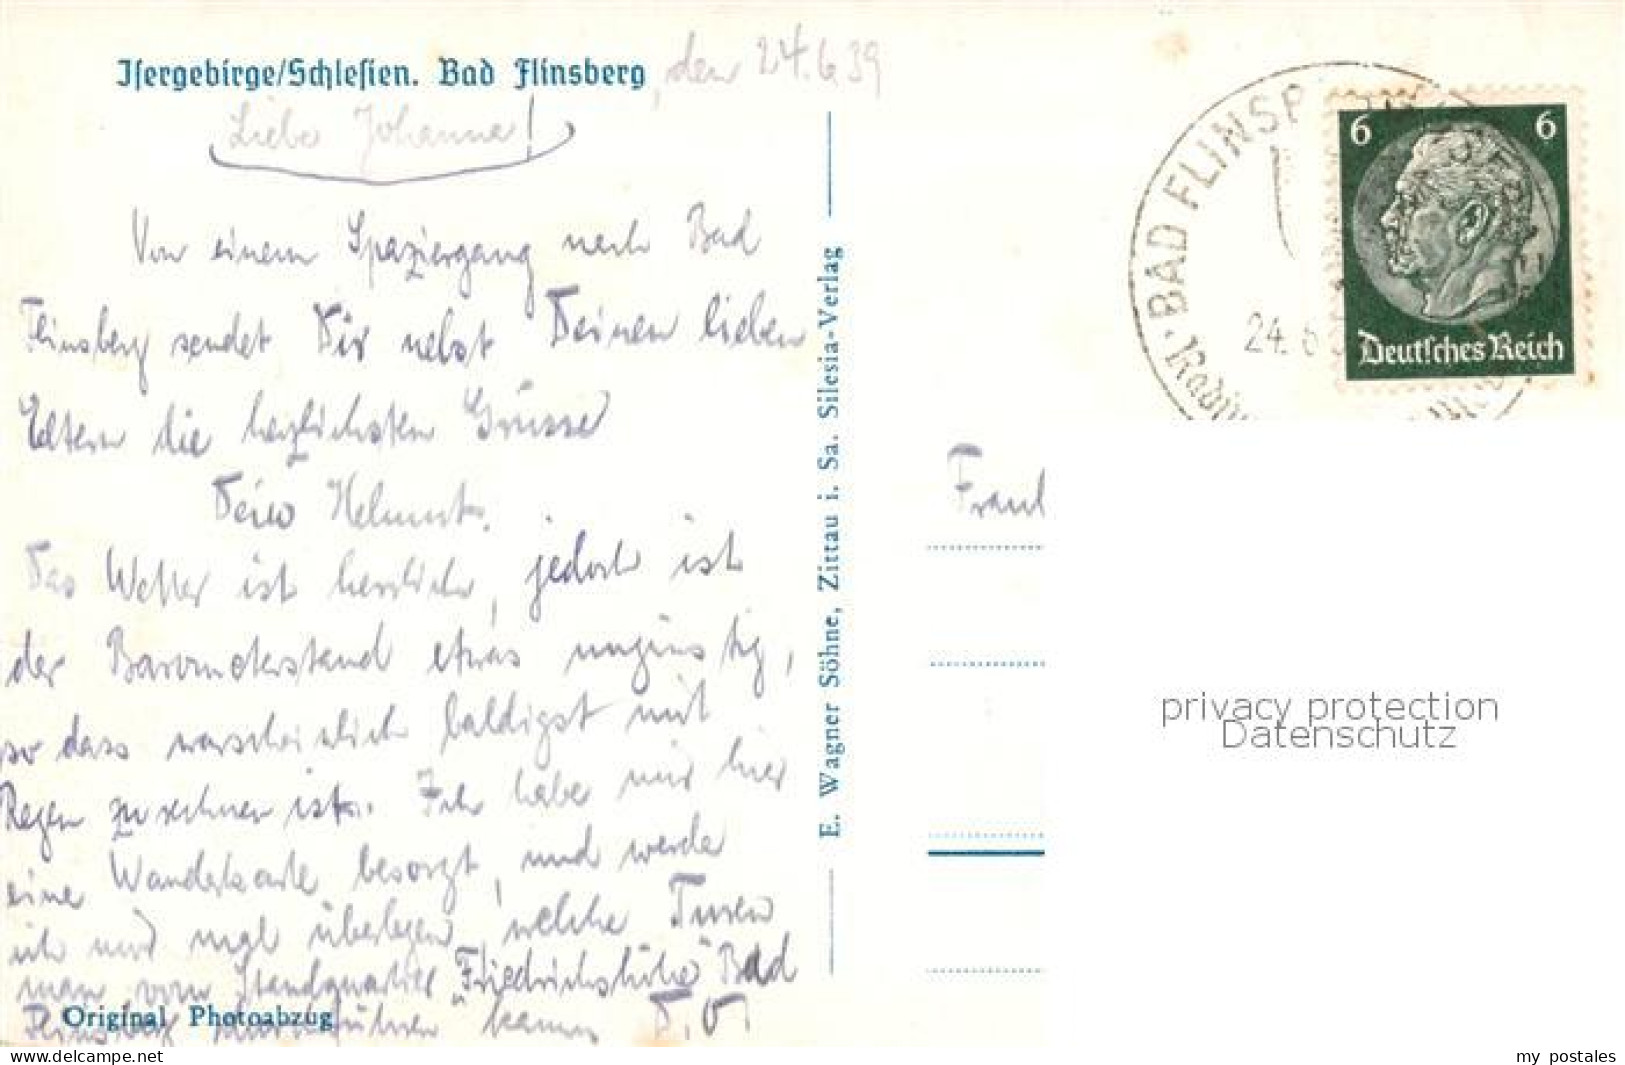 Isergebirge/Schlesien. Bad Flinsberg, den 24.6.39
Liebe Johanna!
Von einem Spaziergang nach Bad
Flinsberg sendet Dir nebst Deinen lieben
Eltern die herzlichsten Grüsse
Dein Helmut.
Das Wetter ist herrlich, jedoch ist
der Barometerstand etwas ungünstig,
so dass warscheinlich baldigst mit
Regen zu rechnen ist. Ich habe mir hier
eine Wanderkarte besorgt, und werde
ich mir mgl überlegen, welche Turen
man vom Standquartier "Friedrichshöhe" Bad
Flinsberg kann
Original Photoabzug
E. Wagner Söhne, Zittau i. Sa. Silesia-Verlag
BAD FLINSB
24. 6
6 6
Deutsches Reich
Fräul
privacy protection
Datenschutz
delcampe.net
my_postales